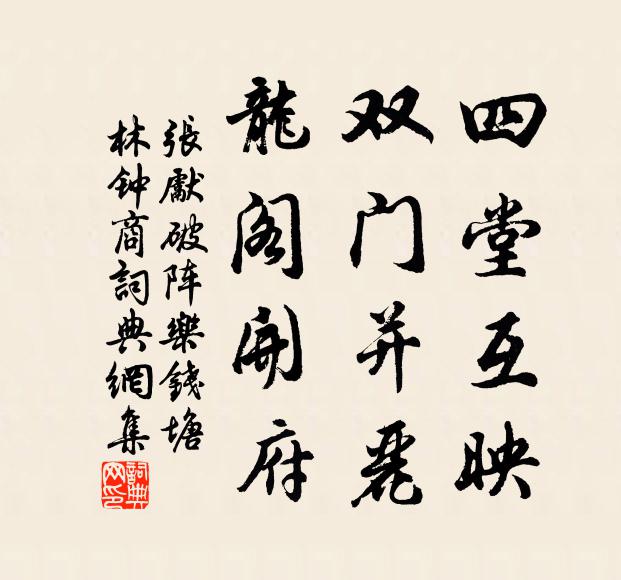 四堂互映
双门并麗
龍阁開府
張獻破阵樂錢塘
林钟商詞典網集
詞典网印